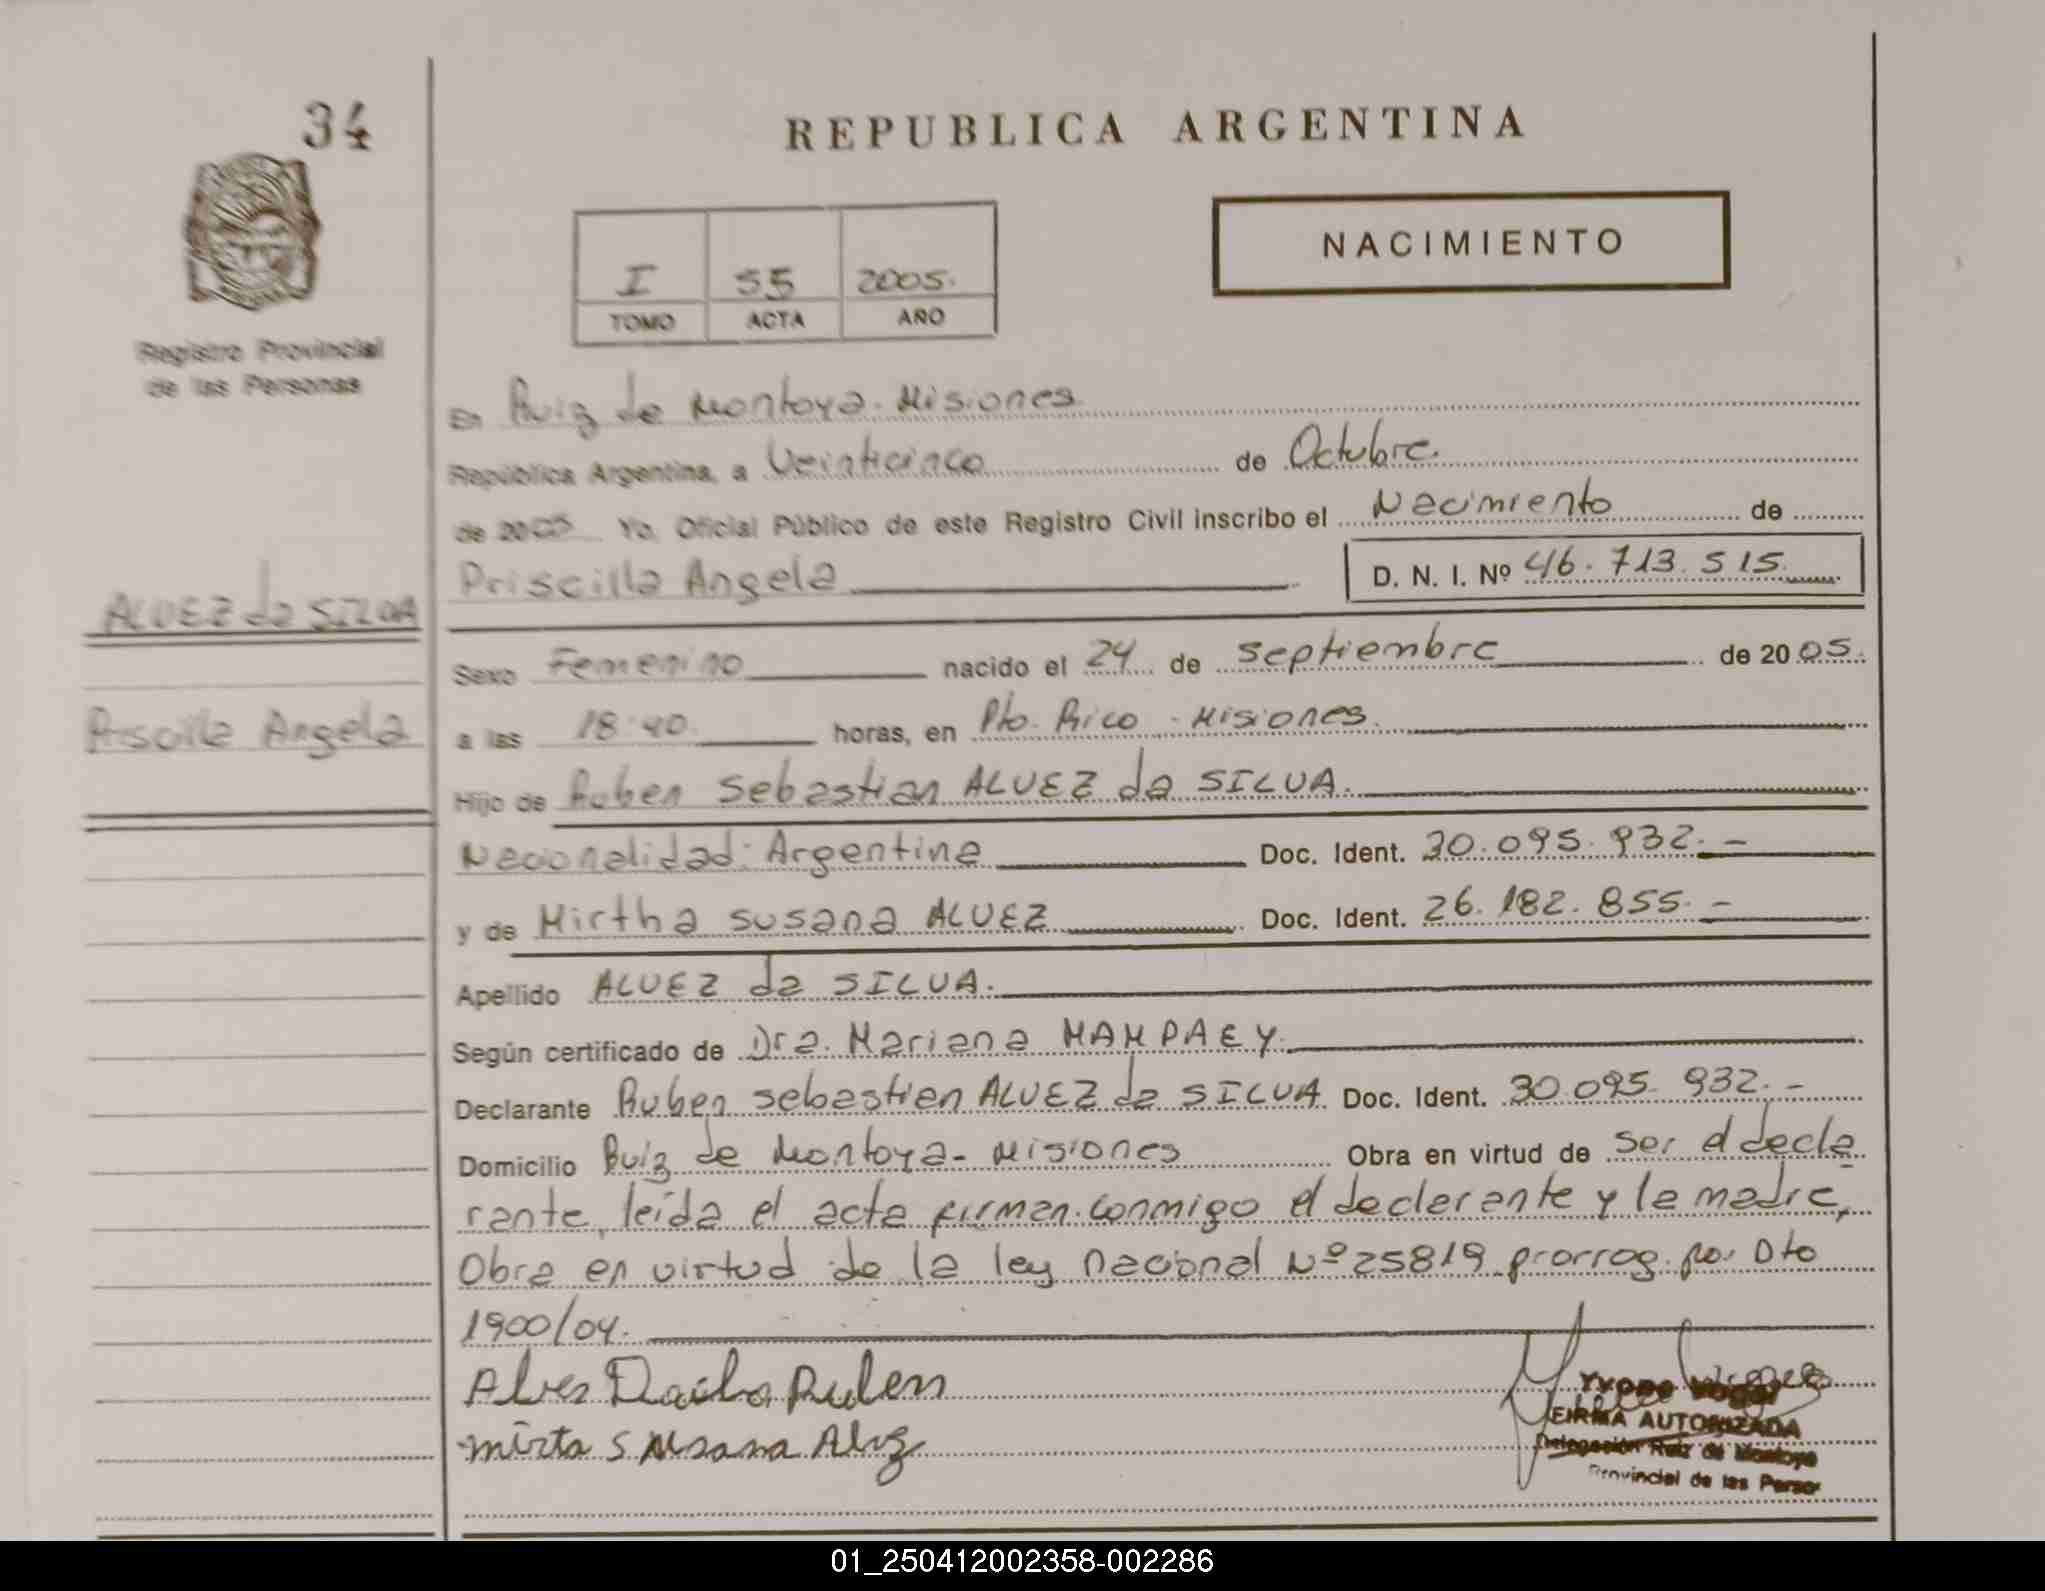 34
REPUBLICA ARGENTINA
NACIMIENTO
I 55 2005.
TOMO ACTA AÑO
Registro Provincial
de las Personas
En Ruiz de Montoya. Misiones
República Argentina, a Veinticinco de Octubre.
de 2005 Yo, Oficial Público de este Registro Civil inscribo el Nacimiento de
Priscilla Angela D. N. I. Nº 46.713.515.
ALVEZ da SILVA
Sexo Femenino nacido el 24 de septiembre de 2005.
Priscilla Angela
a las 18:40 horas, en Pto. Rico - Misiones.
Hijo de Ruben Sebastian ALVEZ da SILVA.
Nacionalidad: Argentina Doc. Ident. 30.095.932.-
y de Mirtha Susana ALVEZ Doc. Ident. 26.182.855.-
Apellido ALVEZ da SILVA.
Según certificado de Dra. Mariana MAMPAEY.
Declarante Ruben Sebastian ALVEZ da SILVA Doc. Ident. 30.095.932.-
Domicilio Ruiz de Montoya - Misiones Obra en virtud de ser el decla
rante, leída el acta firman conmigo el declarante y la madre,
Obra en virtud de la ley nacional Nº 25819 prorrog. por Dto
1900/04.
Ruben
mirta Susana
Yvone Vogel
FIRMA AUTORIZADA
Delegación Ruiz de Montoya
Provincial de las Perso
01_250412002358-002286